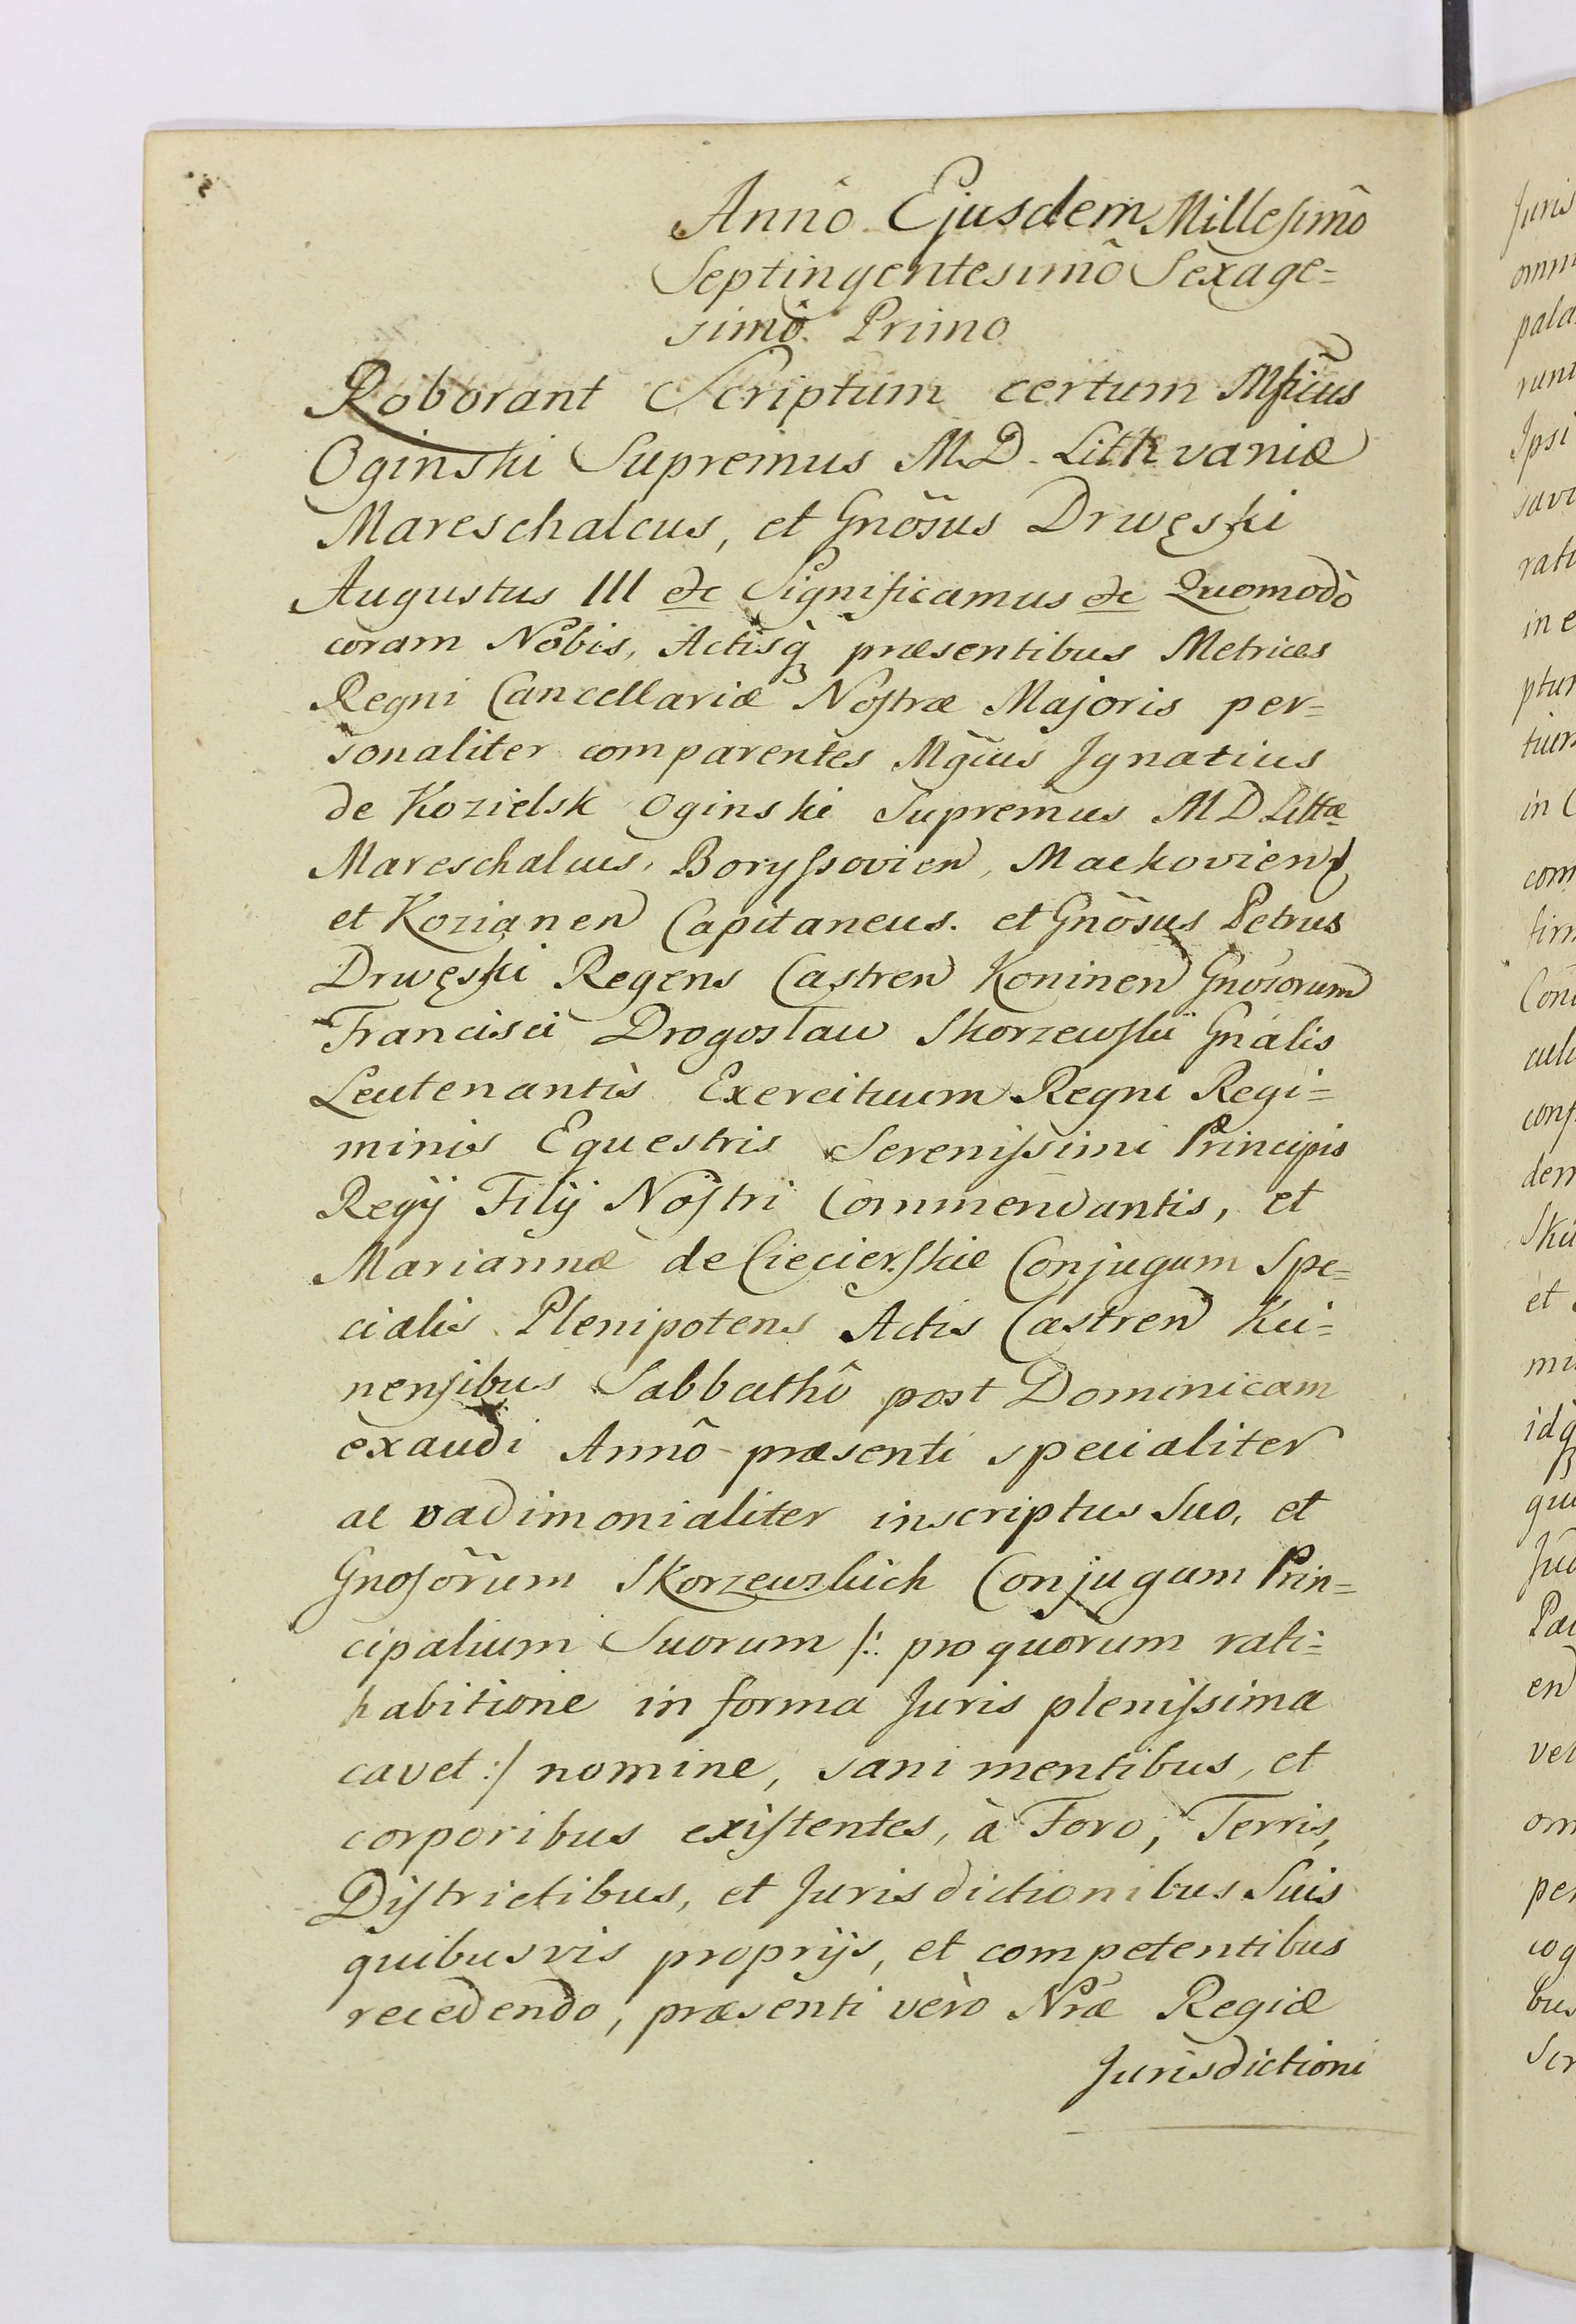 Annô Ejusdem Millesimô
Septingentesimô Sexage=
simô Primo
Roborant Scriptum certum Mficus
Oginski Supremus M.D. Lithvaniæ
Mareschalcus, et Gnõsus Drwęski
Augustus III etc Significamus etc Quomodò
coram Nobis, Actisq̃ præsentibus Metrices
Regni Cancellariæ Nostræ Majoris per=
sonaliter comparentes Mgcus Ignatius
de Kozielsk Oginski Supremus M D Littæ
Mareschalcus, Boryssovien, Mackovien,
et Kozianen Capitaneus. et Gnõsus Petrus
Drwęski Regens Castren Koninen Gnosorum
Francisci Drogosław Skorzewski Gnalis
Leutenantis Exercituum Regni Regi=
minis Equestris Serenissimi Principis
Regÿ Filÿ Nostri Commendantis, et
Mariannæ de Ciecierskie Conjugum Spe=
cialis Plenipotens Actis Castren Kci=
nensibus Sabbathô post Dominicam
exaudi Annô præsenti specialiter
ac vadimonialiter inscriptus Suo, et
Gnosõrum Skorzewskich Conjugum Prin=
cipalium Suorum /: pro quorum rati=
habitione in forma Juris plenissima
cavet :/ nomine, sani mentibus, et
corporibus existentes, à Foro, Terris,
Districtibus, et Jurisdictionibus Suis
quibusvis proprijs, et competentibus
recedendo, præsenti verò Nræ Regiæ
Jurisdictioni